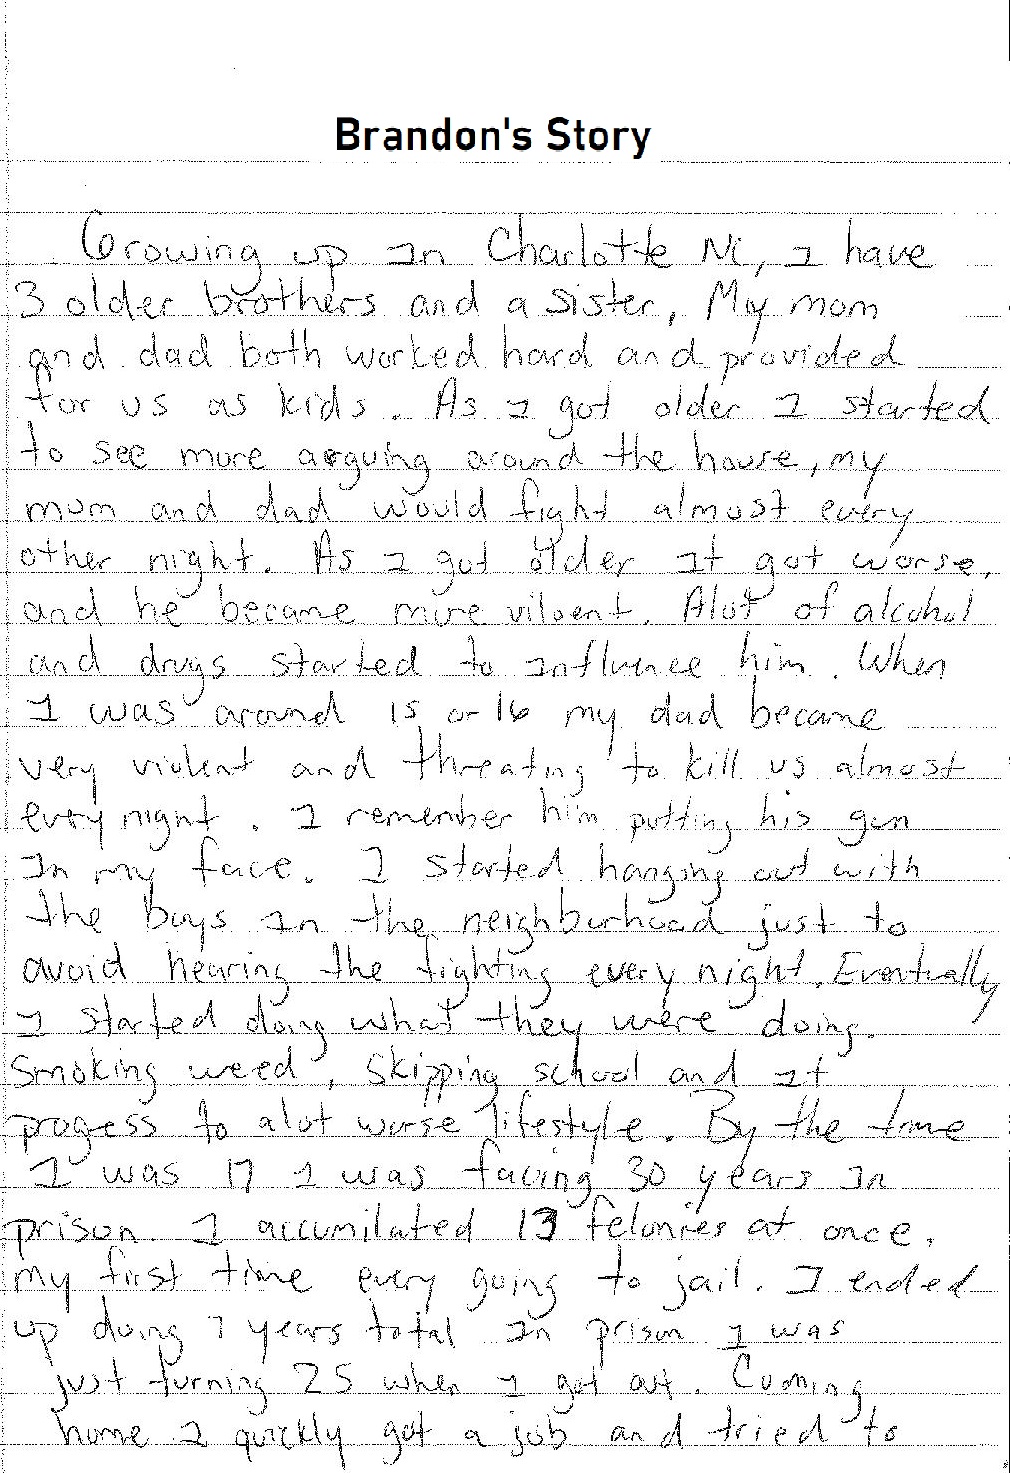 Brandon's Story
Growing up In Charlotte NC, I have
3 older brothers and a sister, My mom
and dad both worked hard and provided
for us as kids. As I got older I started
to see more arguing around the house, my
mom and dad would fight almost every
other night. As I got older It got worse,
and he became more viloent. Alot of alcohol
and drugs started to Influence him. When
I was around 15 or 16 my dad became
very violent and threating to kill us almost
every night. I remember him putting his gun
In my face. I started hanging out with
the boys In the neighborhood just to
avoid hearing the fighting every night. Eventually
I started doing what they were doing.
Smoking weed, Skipping school and It
progess to alot worse lifestyle. By the time
I was 17 I was facing 30 years In
prison. I accumilated 13 felonies at once.
my first time every going to jail. I ended
up doing 7 years total In prison I was
just turning 25 when I got out. Coming
home I quickly got a job and tried to